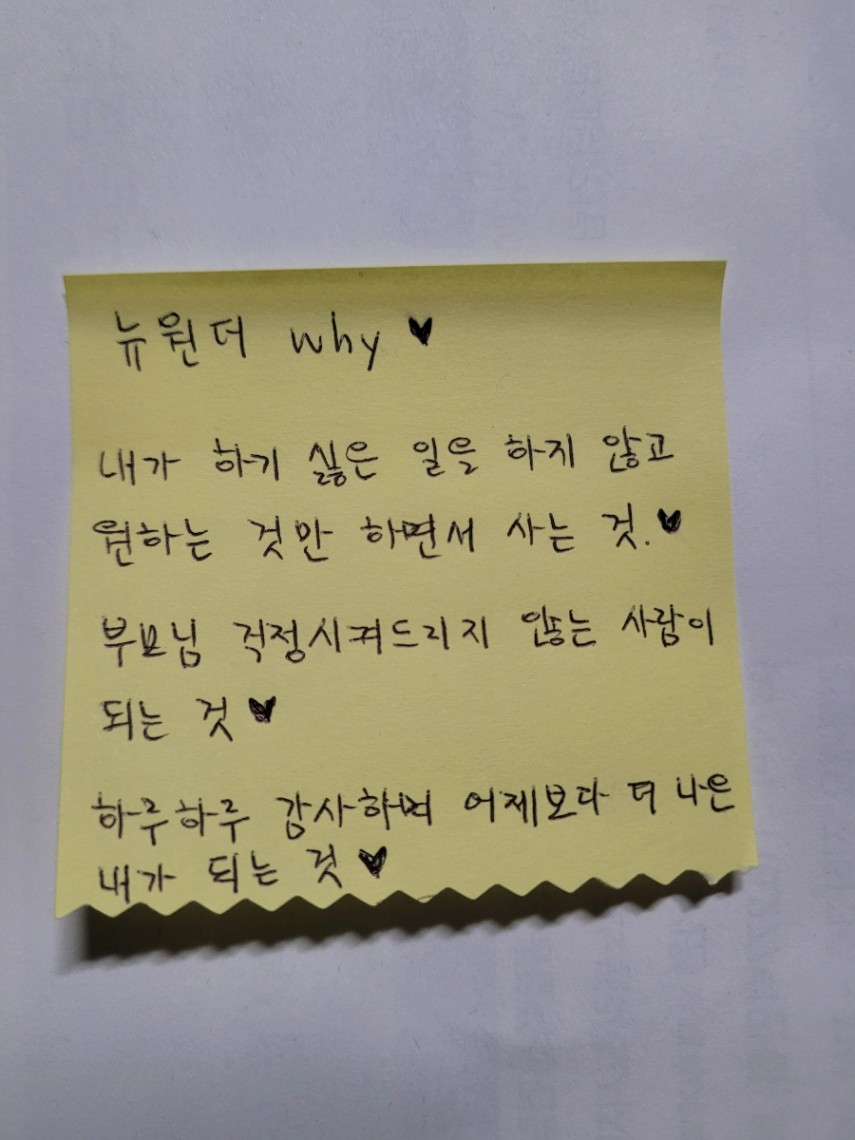 뉴원더 why ♥
내가 하기 싫은 일을 하지 않고
원하는 것만 하면서 사는 것.♥
부모님 걱정시켜드리지 않는 사람이
되는 것 ♥
하루하루 감사하며 어제보다 더 나은
내가 되는 것 ♥